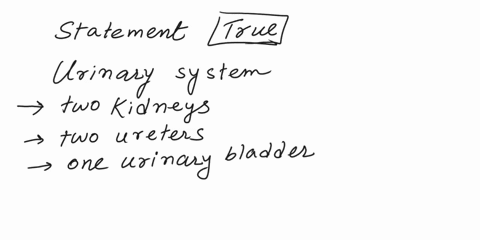 Statement True
Urinary system
→ two kidneys
→ two ureters
→ one urinary bladder